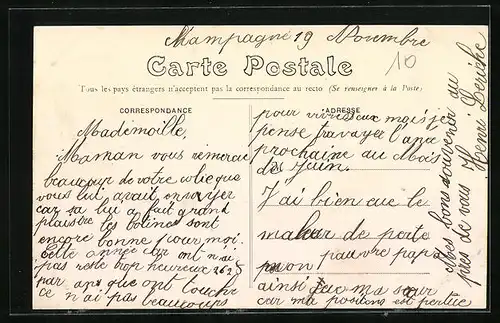 Mampagne 19 Noumbre
10
Carte Postale
Tous les pays étrangers n'acceptent pas la correspondance au recto (Se renseigner à la Poste)
CORRESPONDANCE
Mademoille,
Maman vous rimercie
beaucoup de votre colie que
vous lui avait envoyer
car sa lui a fait grand
plaisire les botines sont
encore bonne pour moi.
Cette année on n'ai
pas reste trop heureux 262 5
par ans que ont touche
ce n'ai pas beaucoups
ADRESSE
pour vivre aux mais je
pense travayer l'ana
prochaine au mois
de Juin.
J'ai bien eue le
maleur de perte
mon pauvre papa
ainsi que ma sœur
car ma position est pertue
Mes bons souvenir au
pies de vous Henri